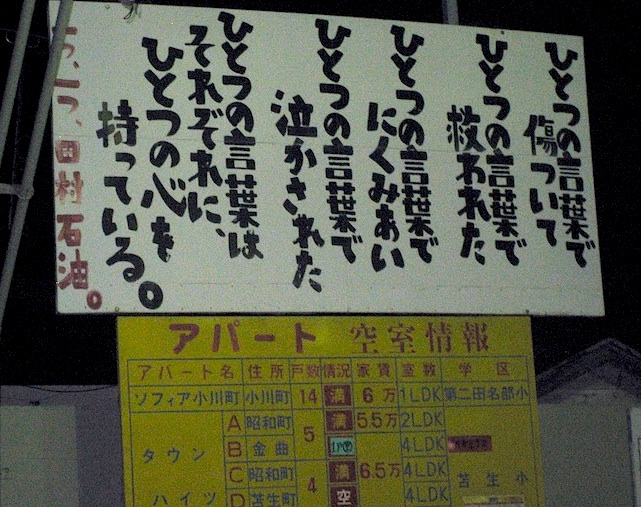 ひとつの言葉で
傷ついて
ひとつの言葉で
救われた
ひとつの言葉で
にくみあい
ひとつの言葉で
泣かされた
ひとつの言葉は
それぞれに、
ひとつの心を
持っている。
田村石油。
アパート 空室情報
アパート名 住所 戸数 情況 家賃 室数 学区
ソフィア小川町 小川町 14 満 6万 1LDK 第二田名部小
タウンハイツ
A 昭和町 5 満 5.5万 2LDK
B 金曲 4LDK
C 昭和町 4 満 6.5万 4LDK 苫生小
D 苫生町 空 4LDK